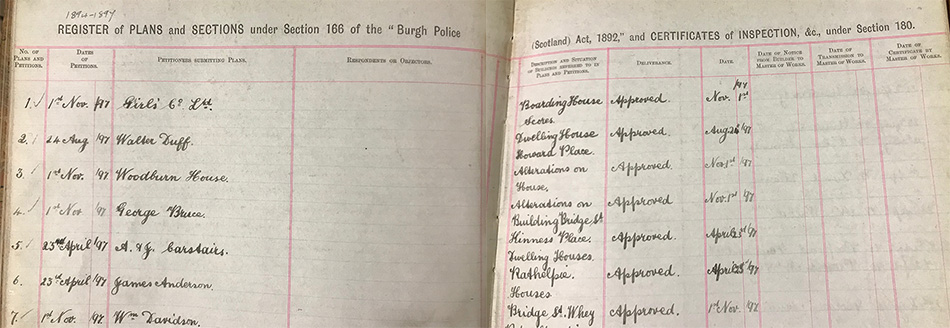 1894-1897
REGISTER of PLANS and SECTIONS under Section 166 of the "Burgh Police
No. of Plans and Petitions.
Dates of Petitions.
Petitioners submitting Plans.
Respondents or Objectors.
1. 1st Nov. /97 Girls Co. Ltd
2. 24 Aug '97 Walter Duff.
3. 1st Nov. '97 Woodburn House.
4. 1st Nov '97 George Bruce.
5. 23rd April '97 A. & J. Carstairs.
6. 23rd April '97 James Anderson.
7. 1st Nov. '97 Wm Davidson.
(Scotland) Act, 1892," and CERTIFICATES of INSPECTION, &c., under Section 180.
Description and Situation of Building referred to in Plans and Petitions.
Deliverance.
Date.
Date of Notice from Builder to Master of Works.
Date of Transmission to Master of Works.
Date of Certificate by Master of Works.
Boarding House Approved. Nov. 1st /97
Scores.
Dwelling House Approved. Aug 26 '97
Howard Place.
Alterations on Approved. Nov 1st '97
House.
Alterations on Approved Nov. 1st '97
Building Bridge St
Kinness Place. Approved. April 23rd '97
Dwelling Houses.
Rathelpie Approved. April 23rd '97
Houses
Bridge St. Whey Approved. 1st Nov. '97